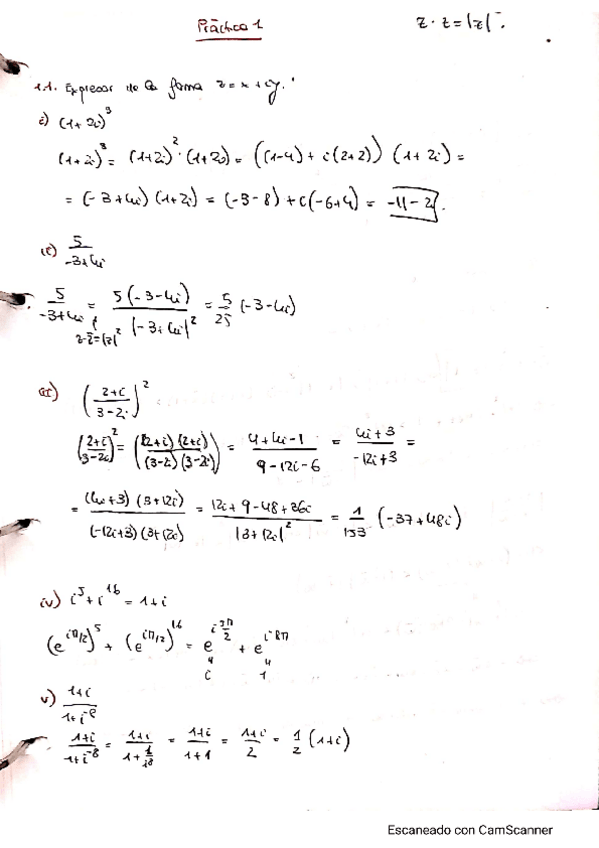 Práctica 1
z · z = |z|².
1.1. Expresar de la forma z = x + iy.
i) (1+2i)³
(1+2i)³ = (1+2i)² · (1+2i) = ((1-4) + i(2+2)) (1+2i) =
= (-3+4i) (1+2i) = (-3-8) + i(-6+4) = -11-2i.
ii) 5/(-3+4i)
5/(-3+4i) = 5(-3-4i)/|-3+4i|² = 5/25 (-3-4i)
z·z̄=|z|²
iii) ((2+i)/(3-2i))²
((2+i)/(3-2i))² = ((2+i)(2+i)/(3-2i)(3-2i)) = (4+4i-1)/(9-12i-6) = (4i+3)/(-12i+3) =
= (4i+3)(3+12i)/(-12i+3)(3+12i) = (12i+9-48+36i)/|3+12i|² = 1/153 (-37+48i)
iv) i⁵ + i¹⁶ = 1+i
(e^{iπ/2})⁵ + (e^{iπ/2})¹⁶ = e^{i5π/2} + e^{i8π}
i 1
v) (1+i)/(1+i⁻⁸)
(1+i)/(1+i⁻⁸) = (1+i)/(1+1/i⁸) = (1+i)/(1+1) = (1+i)/2 = 1/2 (1+i)
Escaneado con CamScanner